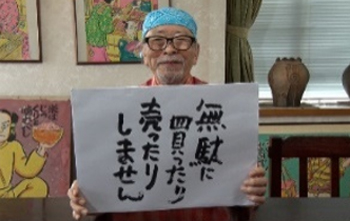 無駄に
買ったり
売ったり
しません